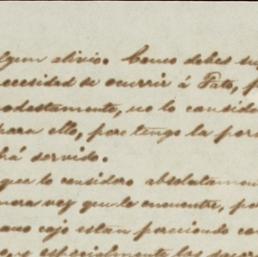 lgun alivio. Como debes su
necesidad de ocurrir á Pato, p
odestamente, no lo conside
para ello, pero tengo la por
há servido.
que lo considero absolutamen
mera vez que la encuentre, po
cajo están pareciendo con
especialmente los